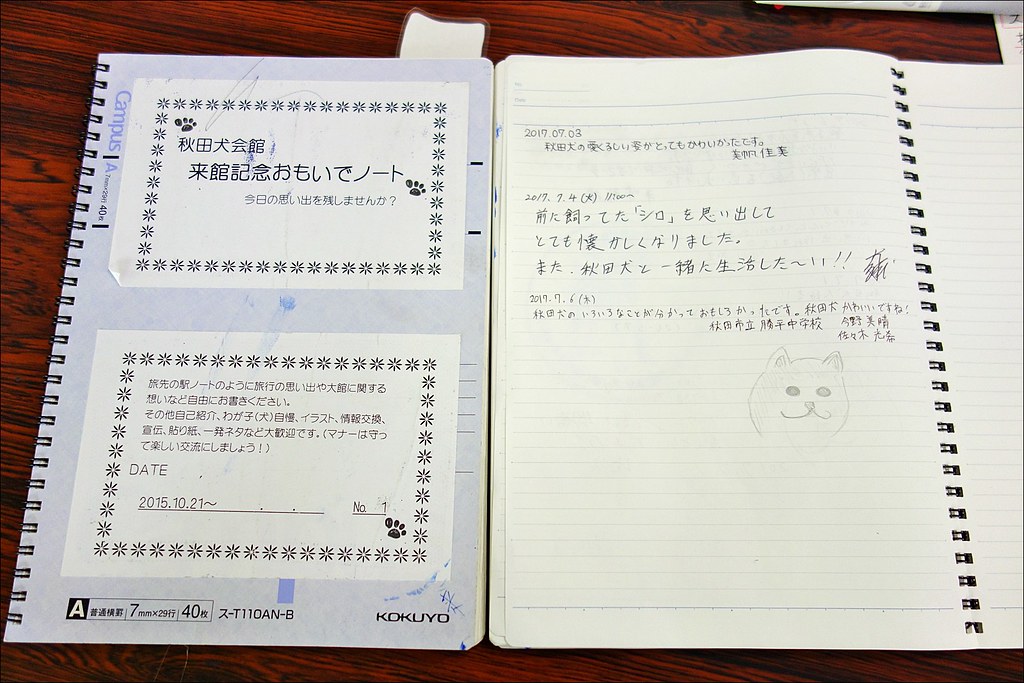 Campus A
7mm×29行 40枚
秋田犬会館
来館記念おもいでノート
今日の思い出を残しませんか？
旅先の駅ノートのように旅行の思い出や大館に関する
想いなど自由にお書きください。
その他自己紹介、わが子(犬)自慢、イラスト、情報交換、
宣伝、貼り紙、一発ネタなど大歓迎です。(マナーは守っ
て楽しい交流にしましょう！)
DATE
2015.10.21〜 . .
No. 1
A 普通横罫 7mm×29行 40枚 ス-T110AN-B
KOKUYO
2017.07.03
秋田犬の愛くるしい姿がとってもかわいかったです。
2017.7.4(火) 11:00〜
前に飼ってた「シロ」を思い出して
とても懐かしくなりました。
また、秋田犬と一緒に生活した〜い!!
2017.7.6(木)
秋田犬のいろいろなことが分かっておもしろかったです。秋田犬かわいいですね!
秋田市立 勝平中学校 今野 美晴
佐々木